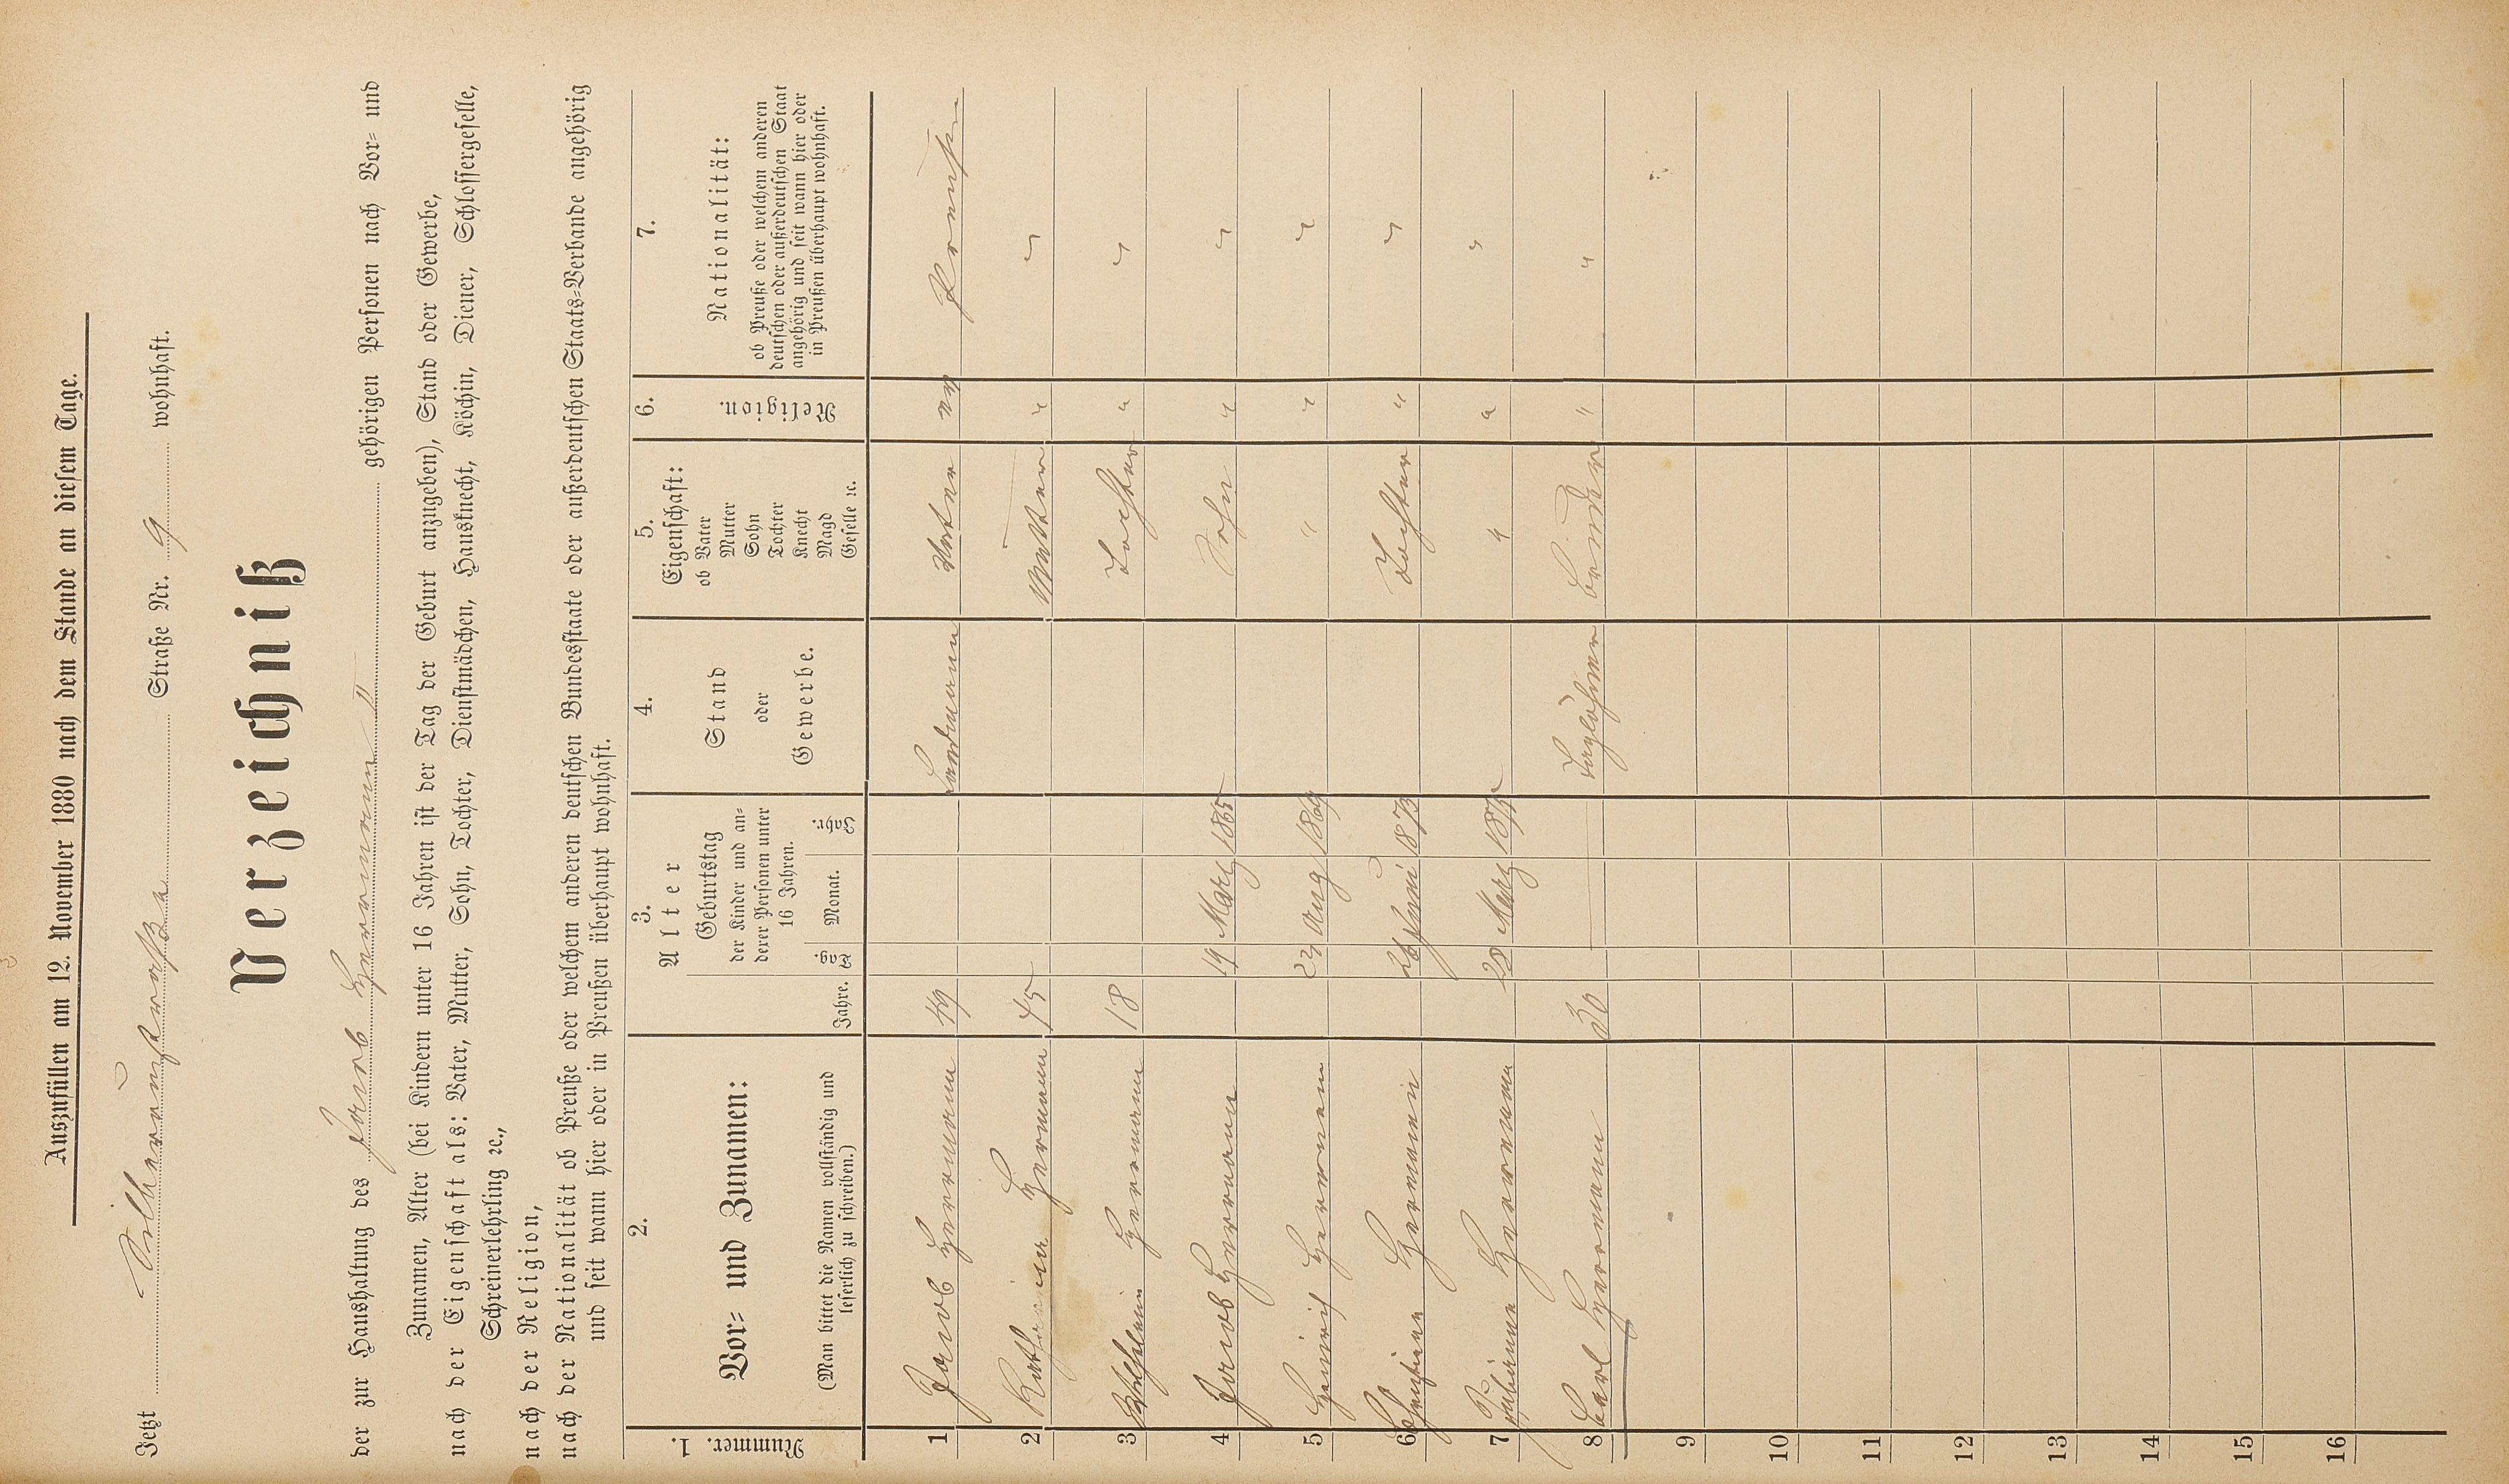 Auszufüllen am 12. November 1880 nach dem Stande an diesem Tage.
Jetzt Straße Nr. 9 wohnhaft.
Verzeichniß
der zur Haushaltung des Jacob Herrmann II gehörigen Personen nach Vor- und
Zunamen, Alter (bei Kindern unter 16 Jahren ist der Tag der Geburt anzugeben), Stand oder Gewerbe,
nach der Eigenschaft als: Vater, Mutter, Sohn, Tochter, Dienstmädchen, Hausknecht, Köchin, Diener, Schlossergeselle,
Schreinerlehrling ꝛc.,
nach der Religion,
nach der Nationalität ob Preuße oder welchem anderen deutschen Bundesstaate oder außerdeutschen Staats-Verbande angehörig
und seit wann hier oder in Preußen überhaupt wohnhaft.
1. Nummer.
2. Vor- und Zunamen:
(Man bittet die Namen vollständig und
leserlich zu schreiben.)
3. Alter
Jahre.
Geburtstag
der Kinder und an-
derer Personen unter
16 Jahren.
Tag. Monat. Jahr.
4. Stand
oder
Gewerbe.
5. Eigenschaft:
ob Vater
Mutter
Sohn
Tochter
Knecht
Magd
Geselle ꝛc.
6. Religion.
7. Nationalität:
ob Preuße oder welchem anderen
deutschen oder außerdeutschen Staat
angehörig und seit wann hier oder
in Preußen überhaupt wohnhaft.
1 Jacob Herrmann 49 Landmann Vater ev Preußen
2 Katharina Hermann 45 Mutter " "
3 Herrmann 18 Tochter " "
4 Jacob Herrmann 19 März 1865 Sohn " "
5 Heinrich Herrman 23 Aug 1869 " " "
6 Christiane Hermann 26 Juni 1873 Tochter " "
7 Herrmann 28 März 1875 " " "
8 Carl Herrmann 30 Taglöhner Bruder " "
9
10
11
12
13
14
15
16